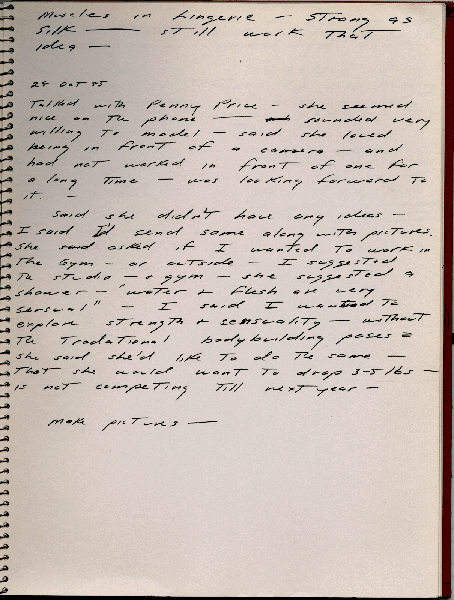 Muscles in Lingerie - Strong as
Silk —— still work that
idea —
28 Oct 85
Talked with Penny Price - she seemed
nice on the phone —— sounded very
willing to model - said she loved
being in front of a camera - and
had not worked in front of one for
a long time - was looking forward to
it. -
Said she didn't have any ideas -
I said I'd send some along with pictures.
She said asked if I wanted to work in
the gym - or outside - I suggested
the studio - + gym - she suggested a
shower - "water + flesh are very
sensual" - I said I wanted to
explore strength + sensuality - without
the Tradational bodybuilding poses =
she said she'd like to do the same -
that she would want to drop 3-5 lbs -
is not competing till next year -
make pictures —